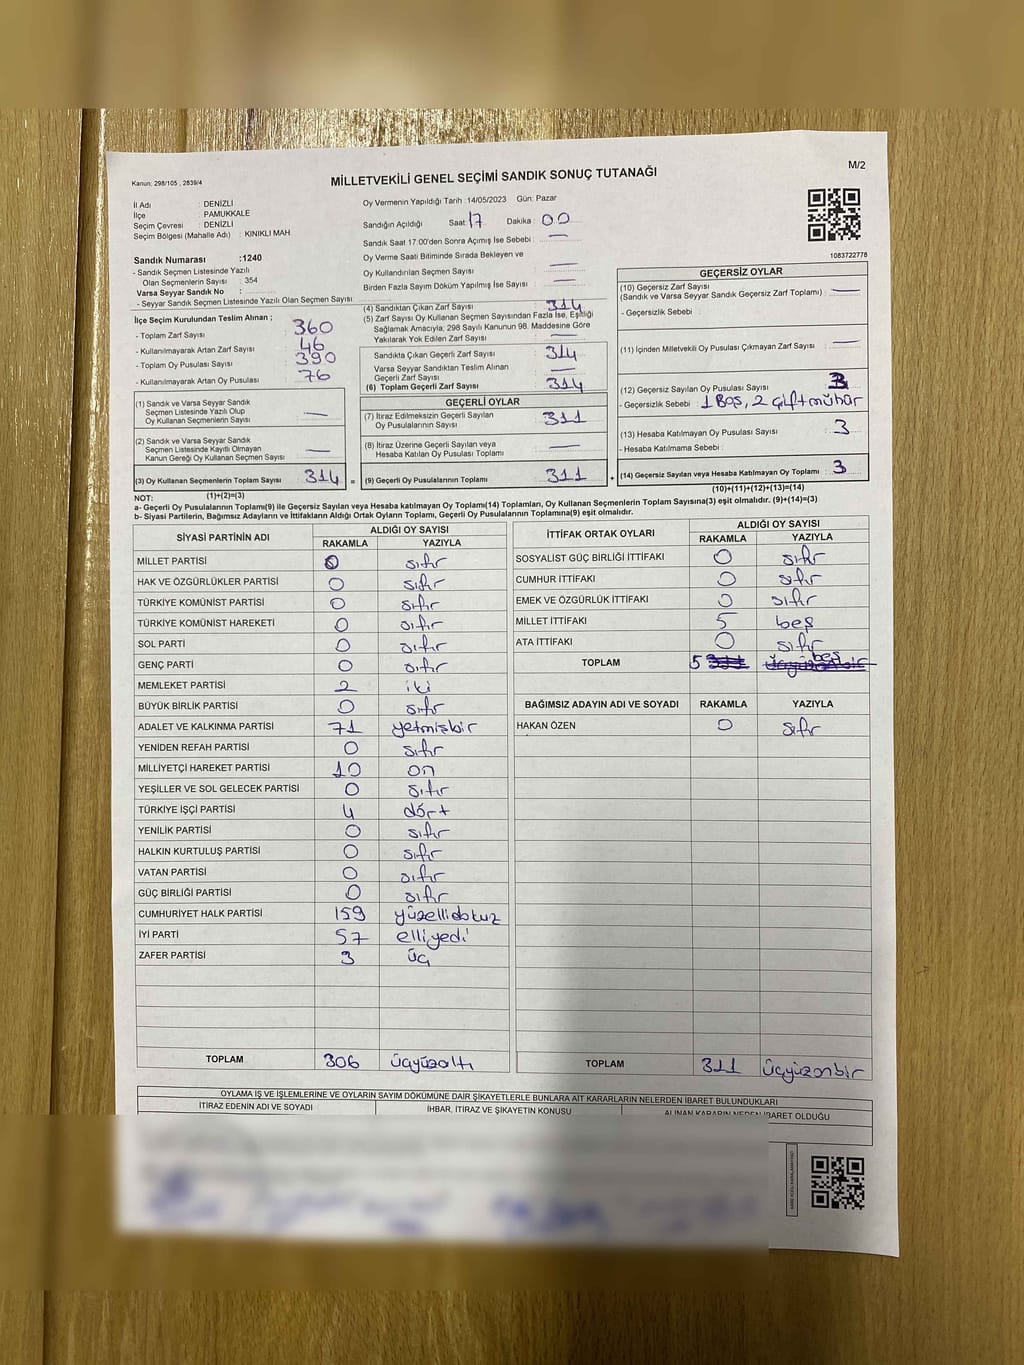 Kanun: 298/105 , 2839/4
M/2
MİLLETVEKİLİ GENEL SEÇİMİ SANDIK SONUÇ TUTANAĞI
İl Adı : DENİZLİ
İlçe : PAMUKKALE
Seçim Çevresi : DENİZLİ
Seçim Bölgesi (Mahalle Adı) : KINIKLI MAH.
Sandık Numarası :1240
- Sandık Seçmen Listesinde Yazılı
Olan Seçmenlerin Sayısı : 354
Varsa Seyyar Sandık No :
- Seyyar Sandık Seçmen Listesinde Yazılı Olan Seçmen Sayısı
İlçe Seçim Kurulundan Teslim Alınan ;
- Toplam Zarf Sayısı : 360
- Kullanılmayarak Artan Zarf Sayısı : 46
- Toplam Oy Pusulası Sayısı : 390
- Kullanılmayarak Artan Oy Pusulası : 76
(1) Sandık ve Varsa Seyyar Sandık
Seçmen Listesinde Yazılı Olup
Oy Kullanan Seçmenlerin Sayısı : —
(2) Sandık ve Varsa Seyyar Sandık
Seçmen Listesinde Kayıtlı Olmayan
Kanun Gereği Oy Kullanan Seçmen Sayısı : —
(3) Oy Kullanan Seçmenlerin Toplam Sayısı : 314 =
(1)+(2)=(3)
Oy Vermenin Yapıldığı Tarih :14/05/2023 Gün: Pazar
Sandığın Açıldığı Saat : 17 Dakika : 00
Sandık Saat 17:00'den Sonra Açımış İse Sebebi : —
Oy Verme Saati Bitiminde Sırada Bekleyen ve
Oy Kullandırılan Seçmen Sayısı : —
Birden Fazla Sayım Döküm Yapılmış İse Sayısı : —
(4) Sandıktan Çıkan Zarf Sayısı : 314
(5) Zarf Sayısı Oy Kullanan Seçmen Sayısından Fazla İse, Eşitliği
Sağlamak Amacıyla; 298 Sayılı Kanunun 98. Maddesine Göre
Yakılarak Yok Edilen Zarf Sayısı : —
Sandıkta Çıkan Geçerli Zarf Sayısı : 314
Varsa Seyyar Sandıktan Teslim Alınan
Geçerli Zarf Sayısı : —
(6) Toplam Geçerli Zarf Sayısı : 314
GEÇERLİ OYLAR
(7) İtiraz Edilmeksizin Geçerli Sayılan
Oy Pusulalarının Sayısı : 311
(8) İtiraz Üzerine Geçerli Sayılan veya
Hesaba Katılan Oy Pusulası Toplamı : —
(9) Geçerli Oy Pusulalarının Toplamı : 311 +
1083722778
GEÇERSİZ OYLAR
(10) Geçersiz Zarf Sayısı
(Sandık ve Varsa Seyyar Sandık Geçersiz Zarf Toplamı) : —
- Geçersizlik Sebebi :
(11) İçinden Milletvekili Oy Pusulası Çıkmayan Zarf Sayısı : —
(12) Geçersiz Sayılan Oy Pusulası Sayısı : 3
- Geçersizlik Sebebi : 1 Boş, 2 çift mühür
(13) Hesaba Katılmayan Oy Pusulası Sayısı : 3
- Hesaba Katılmama Sebebi :
(14) Geçersiz Sayılan veya Hesaba Katılmayan Oy Toplamı : 3
(10)+(11)+(12)+(13)=(14)
NOT:
a- Geçerli Oy Pusulalarının Toplamı(9) ile Geçersiz Sayılan veya Hesaba katılmayan Oy Toplamı(14) Toplamları, Oy Kullanan Seçmenlerin Toplam Sayısına(3) eşit olmalıdır. (9)+(14)=(3)
b- Siyasi Partilerin, Bağımsız Adayların ve İttifakların Aldığı Ortak Oyların Toplamı, Geçerli Oy Pusulalarının Toplamına(9) eşit olmalıdır.
SİYASİ PARTİNİN ADI ALDIĞI OY SAYISI
RAKAMLA YAZIYLA
MİLLET PARTİSİ 0 sıfır
HAK VE ÖZGÜRLÜKLER PARTİSİ 0 sıfır
TÜRKİYE KOMÜNİST PARTİSİ 0 sıfır
TÜRKİYE KOMÜNİST HAREKETİ 0 sıfır
SOL PARTİ 0 sıfır
GENÇ PARTİ 0 sıfır
MEMLEKET PARTİSİ 2 iki
BÜYÜK BİRLİK PARTİSİ 0 sıfır
ADALET VE KALKINMA PARTİSİ 71 yetmişbir
YENİDEN REFAH PARTİSİ 0 sıfır
MİLLİYETÇİ HAREKET PARTİSİ 10 on
YEŞİLLER VE SOL GELECEK PARTİSİ 0 sıfır
TÜRKİYE İŞÇİ PARTİSİ 4 dört
YENİLİK PARTİSİ 0 sıfır
HALKIN KURTULUŞ PARTİSİ 0 sıfır
VATAN PARTİSİ 0 sıfır
GÜÇ BİRLİĞİ PARTİSİ 0 sıfır
CUMHURİYET HALK PARTİSİ 159 yüzellidokuz
İYİ PARTİ 57 elliyedi
ZAFER PARTİSİ 3 üç
TOPLAM 306 üçyüzaltı
İTTİFAK ORTAK OYLARI ALDIĞI OY SAYISI
RAKAMLA YAZIYLA
SOSYALİST GÜÇ BİRLİĞİ İTTİFAKI 0 sıfır
CUMHUR İTTİFAKI 0 sıfır
EMEK VE ÖZGÜRLÜK İTTİFAKI 0 sıfır
MİLLET İTTİFAKI 5 beş
ATA İTTİFAKI 0 sıfır
TOPLAM 5 311 üçyüzonbir beş
BAĞIMSIZ ADAYIN ADI VE SOYADI RAKAMLA YAZIYLA
HAKAN ÖZEN 0 sıfır
TOPLAM 311 üçyüzonbir
OYLAMA İŞ VE İŞLEMLERİNE VE OYLARIN SAYIM DÖKÜMÜNE DAİR ŞİKAYETLERLE BUNLARA AİT KARARLARIN NELERDEN İBARET BULUNDUKLARI
İTİRAZ EDENİN ADI VE SOYADI İHBAR, İTİRAZ VE ŞİKAYETİN KONUSU ALINAN KARARIN NEDEN İBARET OLDUĞU